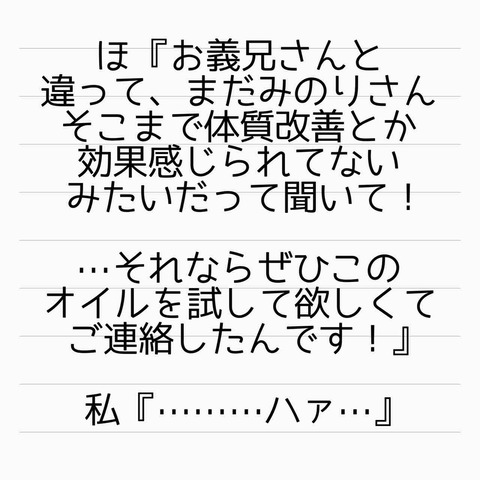 ほ『お義兄さんと
違って、まだみのりさん
そこまで体質改善とか
効果感じられてない
みたいだって聞いて！
…それならぜひこの
オイルを試して欲しくて
ご連絡したんです！』
私『………ハァ…』